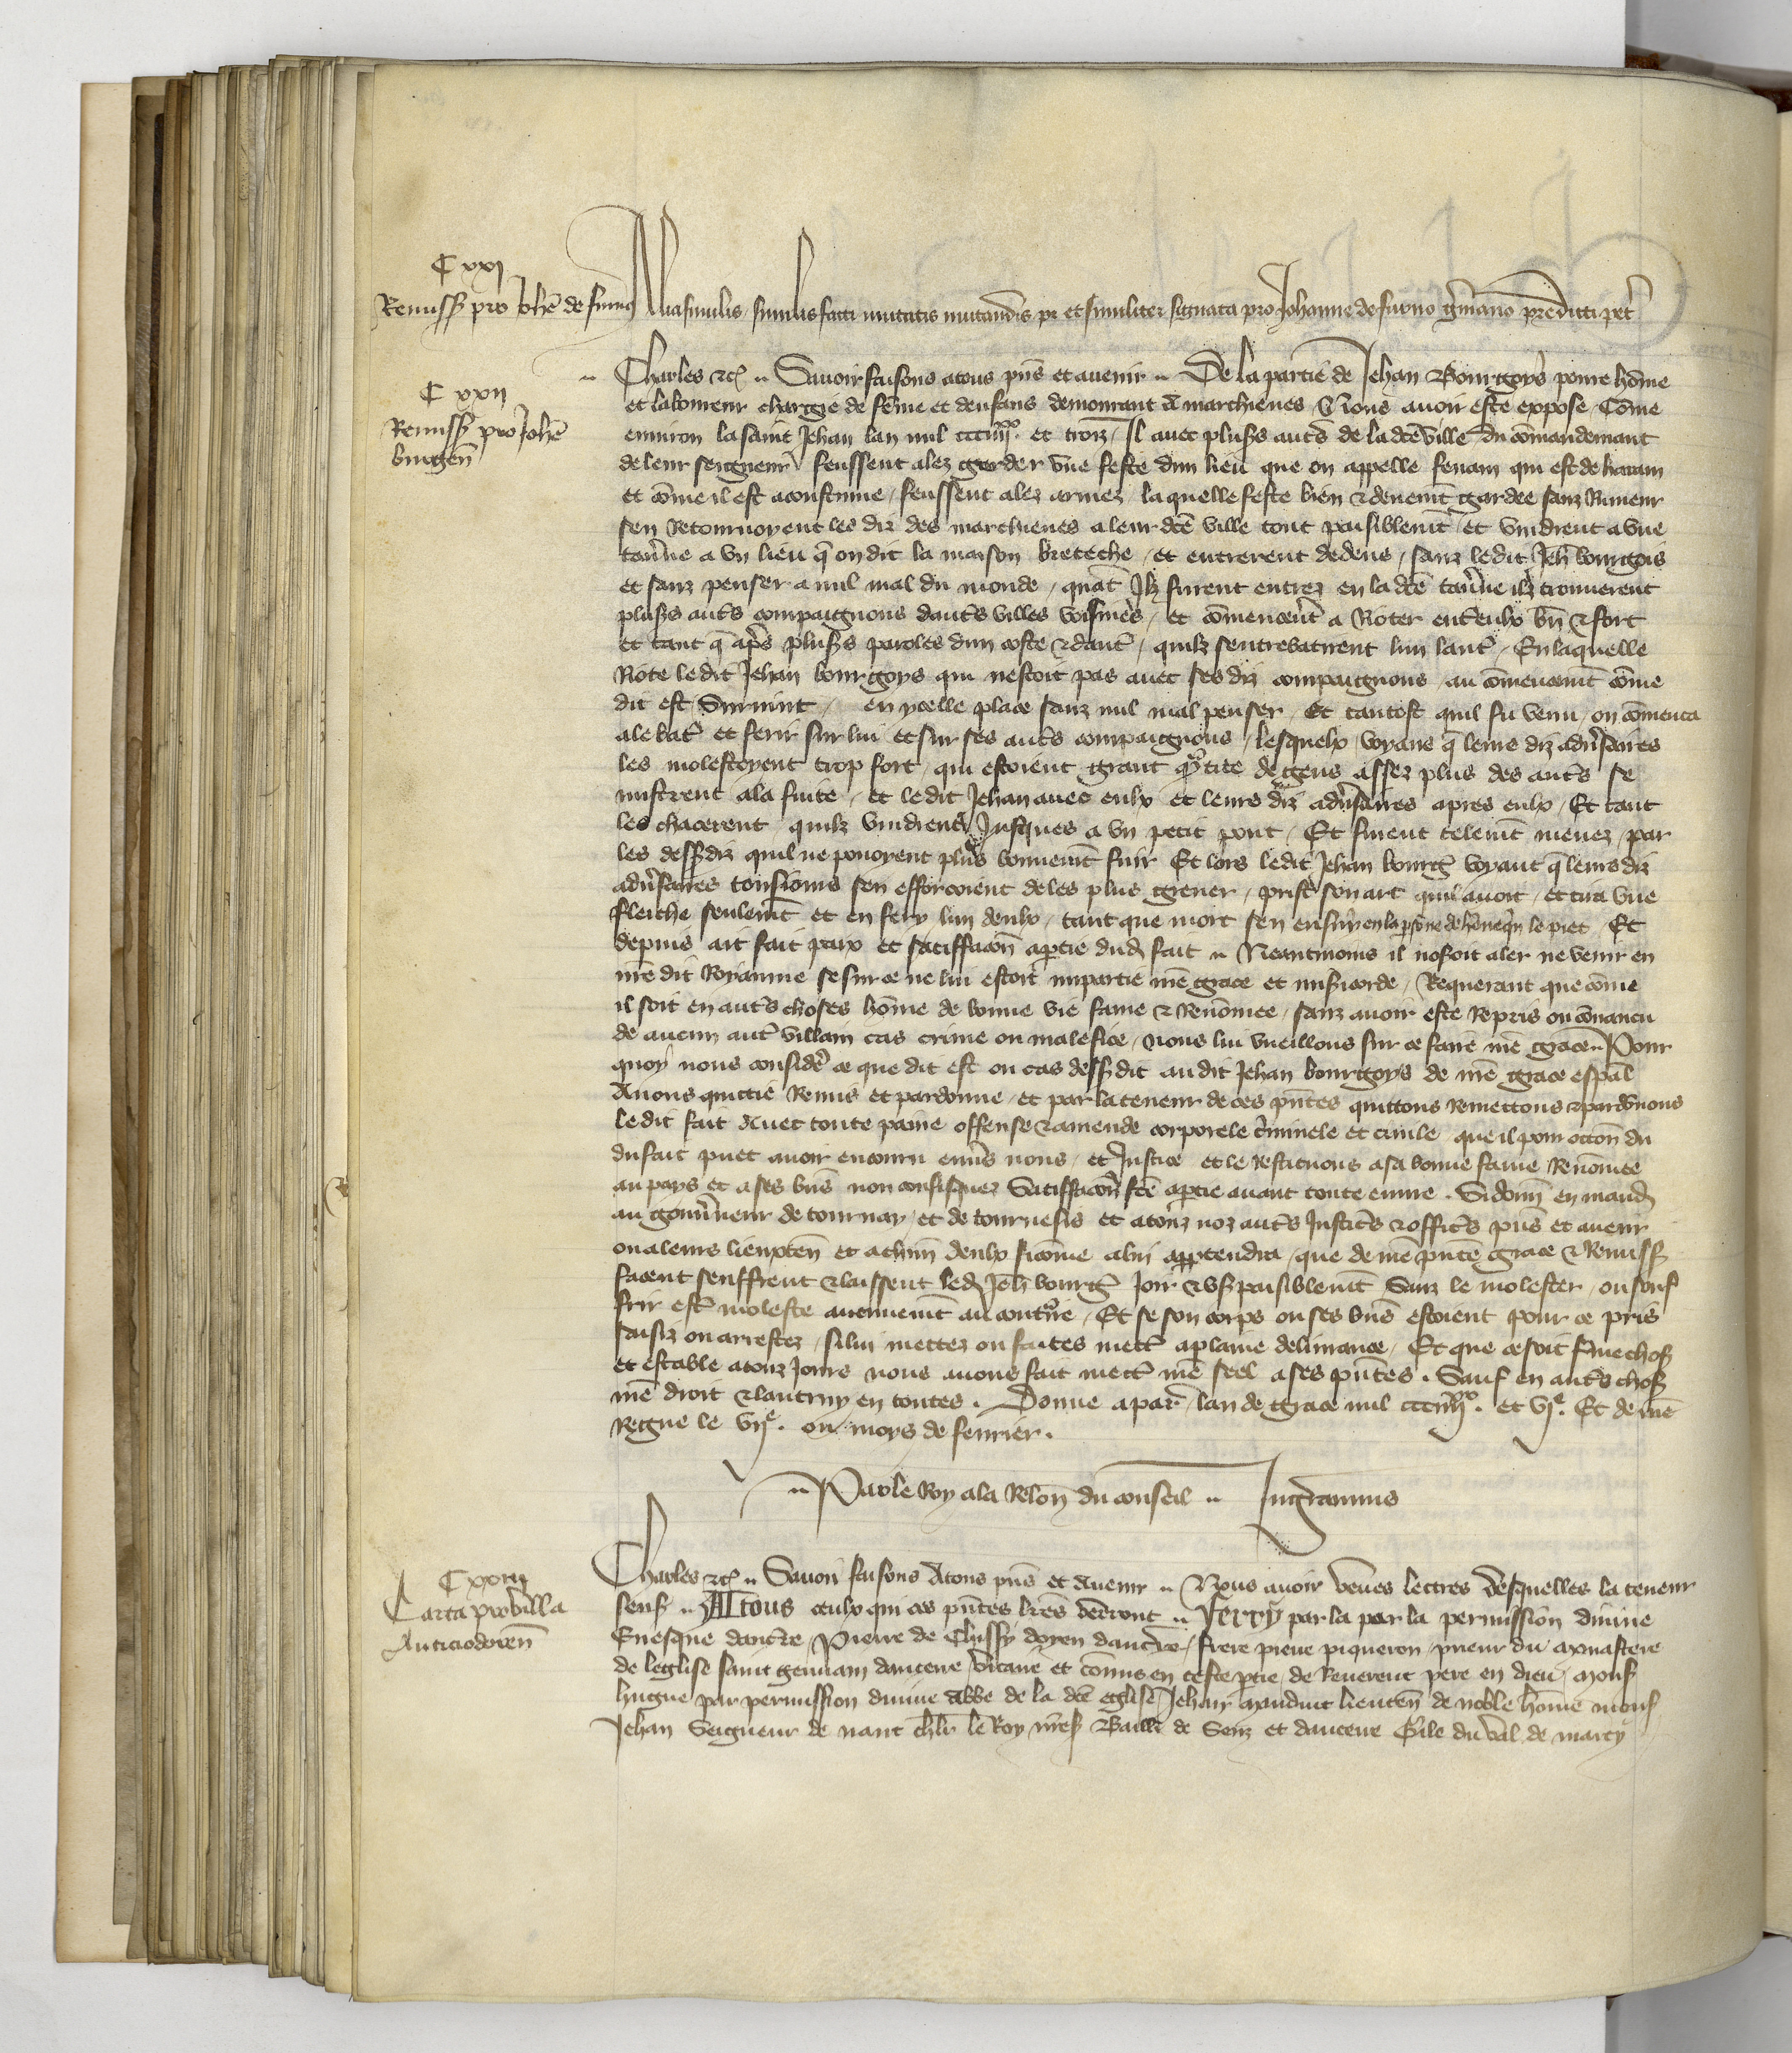 C xxi
Remiss pro Johe de fumo
Alia similis similis facti mutatis mutandis pr et similiter signata pro Johanne de fumo germano predicti petr
C xxii
Remiss pro Johe
burgen
Charles etc. Savoir faisons a tous pns et avenir. De la partie de Jehan Bourgoys povre home
et laboureur chargie de feme et denfans demourant a marchienes Nous avoir este expose Come
environ la saint Jehan lan mil ccciiijxx. et troiz, Il avec pluss auts de la dce ville du comandemant
de leur seigneur feussent alez garder une feste dun lieu que on appelle fenain qui est de
et come il est acoustume, feussent alez armez, laquelle feste bien et deuement gardee sanz Rimeur
sen Retournoyent les diz des marchienes a leur dce ville tout paisiblemt et vindrent a une
taverne a un lieu q on dit la maison breteche, et entrerent dedens, sanz ledit Jeh bourgois
et sanz penser a nul mal du monde, quat Ilz furent entrez en la dce taverne ilz trouverent
pluss auts compaignons dauts villes voisines, et comencert a Rioter ent eulx bn et fort
et tant q aps pluss paroles dun coste et daut, quilz sentrebatirent lun laut, En laquelle
Riote ledit Jehan bourgoys qui nestoit pas avec ses diz compaignons au comencemt come
dit est Survint, en ycelle place sanz nul mal penser, Et tantost quil fu venu, on comenca
a le bat et ferir sur lui et sur ses auts compaignons, lesquelx voyans q leurs diz adversaires
les molestoyent trop fort, qui estoient grant qtite de gens assez plus des auts se
mistrent a la fuite, et ledit Jehan avec eulx et leurs diz adversaires apres eulx, Et tant
les chacerent quilz vindrent Jusques a un petit pont, Et furent telemt menez, par
les dessdiz quil ne povoyent plus bonnemt fuir Et lors ledit Jehan bourg voyant q leurs diz
adversaires tousjours sen efforcoient de les plus grever, prist son arc quil avoit, et tira une
fleiche seulemt et en fery lun deulx, tant que mort sen ensuy en la psone de le piet, Et
depuis ait fait paix et satiffacon a partie dud fait. Neantmoins il nosoit aler ne venir en
nre dit Royaume se sur ce ne lui estoit impartie nre grace et misicorde, Requerant que come
il soit en auts choses home de bonne vie fame et Renomee, sanz avoir este Repris ou convaincu
de aucun aut villain cas crime ou malefice, nous lui vueillons sur ce faire nre grace. Pour
quoy nous considere ce que dit est ou cas dessdit audit Jehan bourgoys de nre grace espal
Avons quittie Remis et pardonne, et par la teneur de ces pntes quittons Remettons et pardonnons
ledit fait Avec toute paine offense et amende corporele criminele et civile que il pour occon du
du fait puet avoir encouru envers nous, et Justice et le restituons a sa bonne fame Renomee
au pays et a ses bns non confisquez Satiffacon fce a partie avant toute euvre. Si donn en mand
au gouverneur de tournay, et de tournesis et a touz noz auts Justics et offics pns et avenir
ou a leurs lieuxten et a chun deulx sicome a lui appartendra, que de nre pnte grace et Remiss
facent seuffrent et laissent led Jeh bourg Joir et us paisiblemt Sanz le molester, ou souf
frir est moleste aucunemt au contre, Et se son corps ou ses bns estoient pour ce pris
saisiz ou arrestez, si lui mettez ou faites mett a plaine delivrance, Et que ce soit ferme chos
et estable a touz Jours nous avons fait mett nre seel a ses pntes. Sauf en auts chos
nre droit et lautruy en toutes. Donne a paris lan de grace mil ccciiijxx. et vje. Et de nre
Regne le vije. ou moys de fevrier.
Par le Roy a la Relon du conseil. Ingeramnus
C xxiij
Carta pro villa
Autissiodoren
Charles etc. Savoir faisons A tous pns et Avenir. Nous avoir veues lectres desquelles la teneur
sens. A Tous ceulx qui ces pntes lres verront. Ferry par la par la permission divine
Evesque daucre, Pierre de Chissy doyen daucre, frere pierre piqueron, prieur du monastere
de leglise saint germain daucerre, vicaire et comis en ceste ptie, de Reverent pere en dieu, Mons
hugue par permission divine Abbe de la dce eglise, Jehan lieuten de noble home mons
Jehan Seigneur de nant chlr le Roy nres Bailli de Senz et daucerre Gile du val de marcy